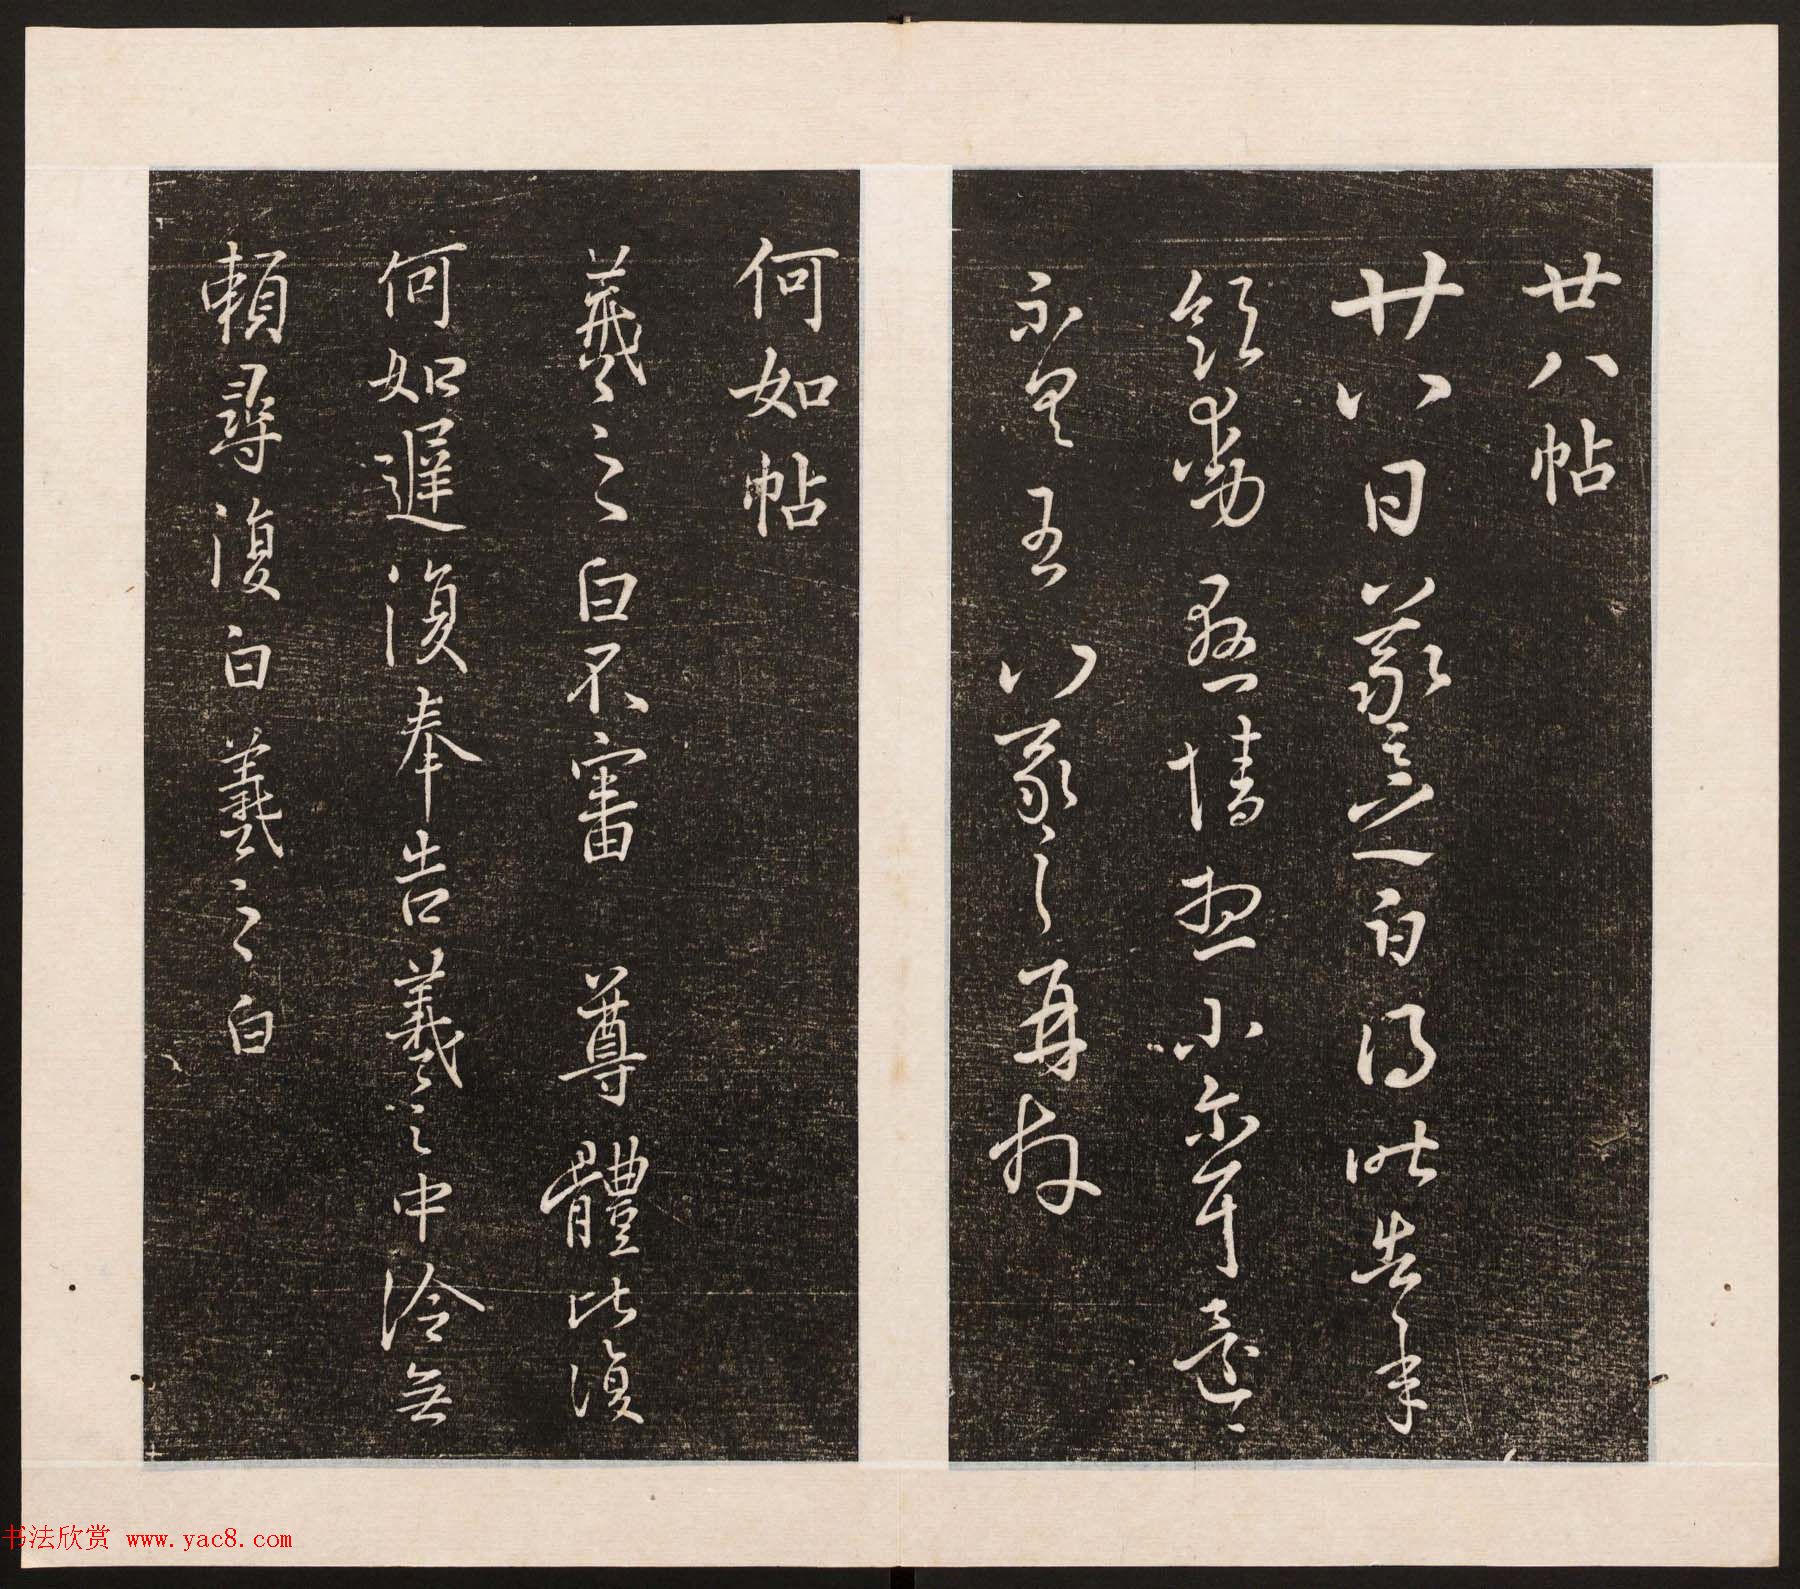 廿八帖
廿八日羲之白得昨告承
飲動懸情想小爾耳還
不具 羲之再拜
何如帖
羲之白不審 尊體比復
何如遲復奉告羲之中冷無
賴尋復白羲之白
书法欣赏 www.yac8.com